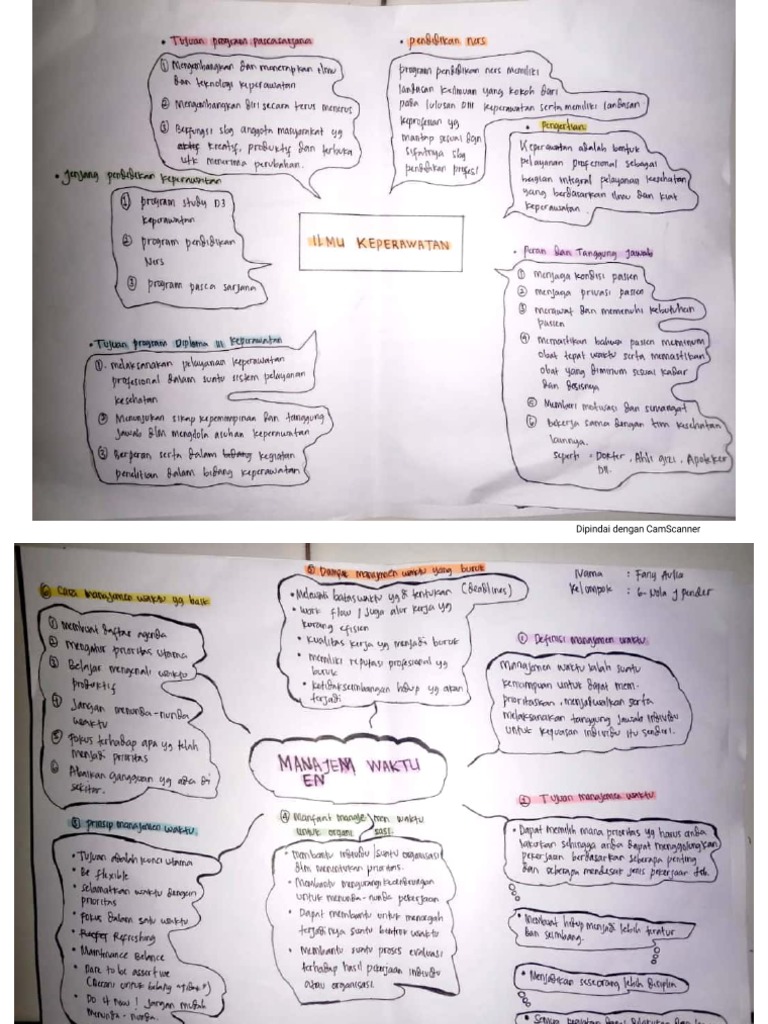 • Tujuan program pascasarjana
① Mengembangkan dan menerapkan ilmu
dan teknologi keperawatan
② Mengembangkan diri secara terus menerus
③ Berfungsi sbg anggota masyarakat yg
aktif kreatif, produktif dan terbuka
utk menerima perubahan.
• pendidikan ners
program pendidikan ners memiliki
landasan keilmuan yang kokoh dari
pada lulusan DIII keperawatan serta memiliki landasan
keprofesian yg
mantap sesuai dgn
sifatnya sbg
pendidikan profesi
• Pengertian
Keperawatan adalah bentuk
pelayanan profesional sebagai
bagian integral pelayanan kesehatan
yang berdasarkan ilmu dan kiat
keperawatan.
• Jenjang pendidikan keperawatan
① program study D3
keperawatan
② program pendidikan
Ners
③ program pasca sarjana
ILMU KEPERAWATAN
• Peran dan Tanggung Jawab
① menjaga kondisi pasien
② menjaga privasi pasien
③ merawat dan memenuhi kebutuhan
pasien
④ Memastikan bahwa pasien meminum
obat tepat waktu serta memastikan
obat yang diminum sesuai kadar
dan dosisnya
⑤ Memberi motivasi dan semangat
⑥ Bekerja sama dengan tim kesehatan
lainnya.
seperti : Dokter, Ahli gizi, Apoteker
Dll.
• Tujuan program Diploma III keperawatan
①. melaksanakan pelayanan keperawatan
profesional dalam suatu sistem pelayanan
kesehatan
② Menunjukan sikap kepemimpinan dan tanggung
jawab dlm mengelola asuhan keperawatan
③ Berperan serta dalam bidang kegiatan
penelitian dalam bidang keperawatan
Dipindai dengan CamScanner
Nama : Fany Aulia
Kelompok : 6-
⑥ Cara manajemen waktu yg baik
① membuat daftar agenda
② Mengatur prioritas utama
③ Belajar mengenali waktu
produktif
④ Jangan menunda-nunda
waktu
⑤ Fokus terhadap apa yg telah
menjadi prioritas
⑥ Abaikan gangguan yg ada di
sekitar.
⑤ Dampak manajemen waktu yang buruk
• Melewati batas waktu yg di tentukan (deadlines)
• work flow / juga alur kerja yg
kurang efisien
• kualitas kerja yg menjadi buruk
• memiliki reputasi profesional yg
buruk
• ketidakseimbangan hidup yg akan
terjadi
① Definisi manajemen waktu
manajemen waktu ialah suatu
kemampuan untuk dapat mem-
prioritaskan, menjadwalkan serta
melaksanakan tanggung jawab individu
untuk kepuasan individu itu sendiri.
MANAJEM WAKTU
EN
② Tujuan manajemen waktu
• Dapat memilih mana prioritas yg harus anda
lakukan sehingga anda dapat menggolongkan
pekerjaan berdasarkan seberapa penting
dan seberapa mendesak jenis pekerjaan tsb.
• Membuat hidup menjadi lebih teratur
dan seimbang.
• Menjadikan seseorang lebih disiplin
③ prinsip manajemen waktu
• Tujuan adalah kunci utama
• Be flexible
• selamatkan waktu dengan
prioritas
• Fokus dalam satu waktu
• Refreshing
• Maintenance Balance
• Dare to be assertive
(Berani untuk bilang "tidak")
• Do it now! Jangan mudah
menunda-nunda.
④ Manfaat manaje men waktu
untuk organi sasi
• membantu individu/suatu organisasi
dlm menentukan prioritas.
• Membantu mengurangi kecenderungan
untuk menunda-nunda pekerjaan
• Dapat membantu untuk mencegah
terjadinya suatu bentrok waktu
• Membantu suatu proses evaluasi
terhadap hasil pekerjaan individu
atau organisasi.